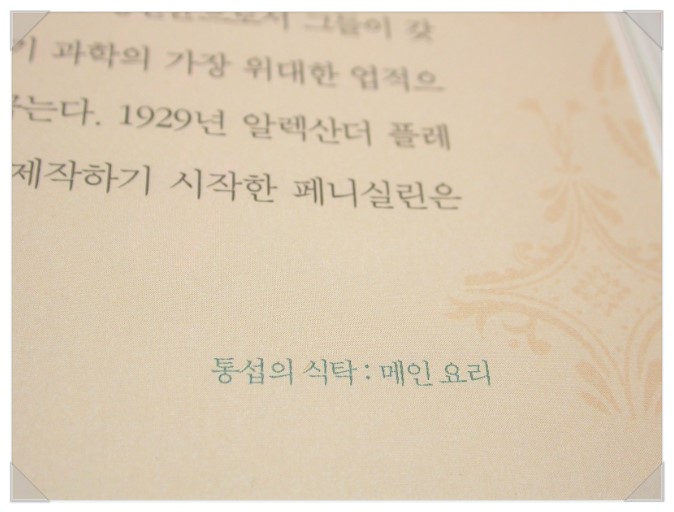 그들이 갖
과학의 가장 위대한 업적으
는다. 1929년 알렉산더 플레
제작하기 시작한 페니실린은
통섭의 식탁 : 메인 요리